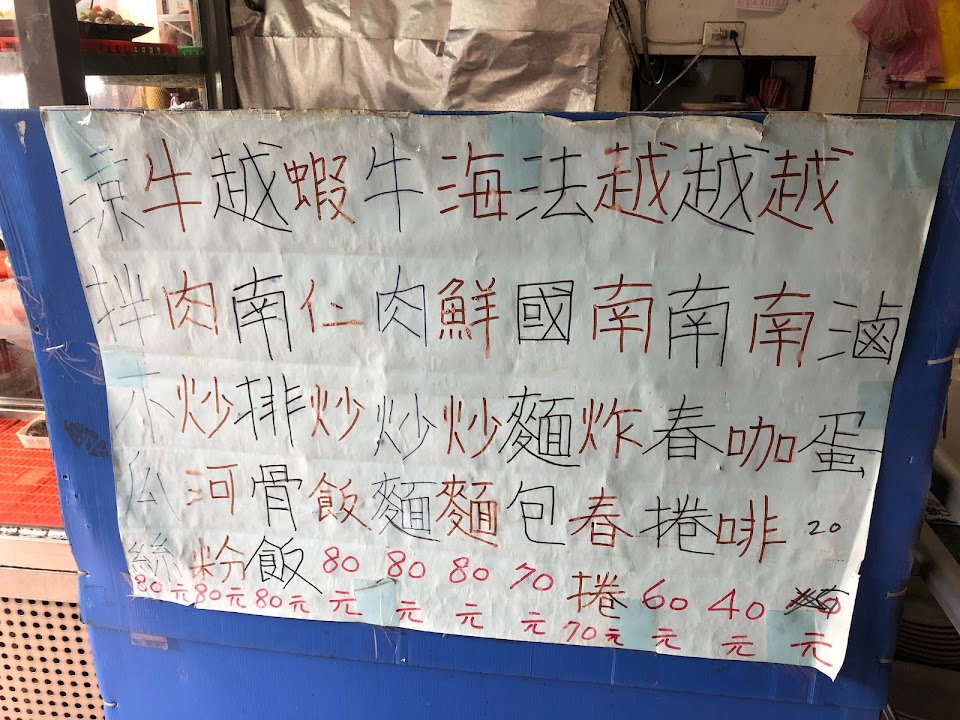 滷蛋20元
越南咖啡40元
越南春捲60元
越南炸春捲70元
法國麵包70元
海鮮炒麵80元
牛肉炒麵80元
蝦仁炒飯80元
越南排骨飯80元
牛肉炒河粉80元
涼拌木瓜絲80元